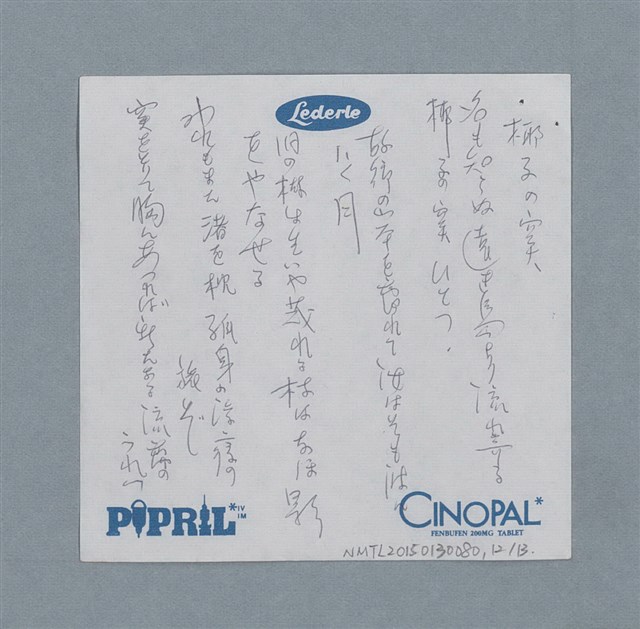 Lederle
椰子の実
名も知らぬ遠き島より流れ寄る
椰子の実ひとつ.
故郷の岸を離れて汝はそも波に
いく月
旧の樹は生いや茂れる枝はなほ影
をやなせる
われもまた渚を枕孤身の浮寝の
旅ぞ
実をとりて胸にあつれば新たなる流離の
うれひ
PIPRIL*
IV
IM
CINOPAL*
FENBUFEN 200MG TABLET
NMTL20150130080, 12/13.